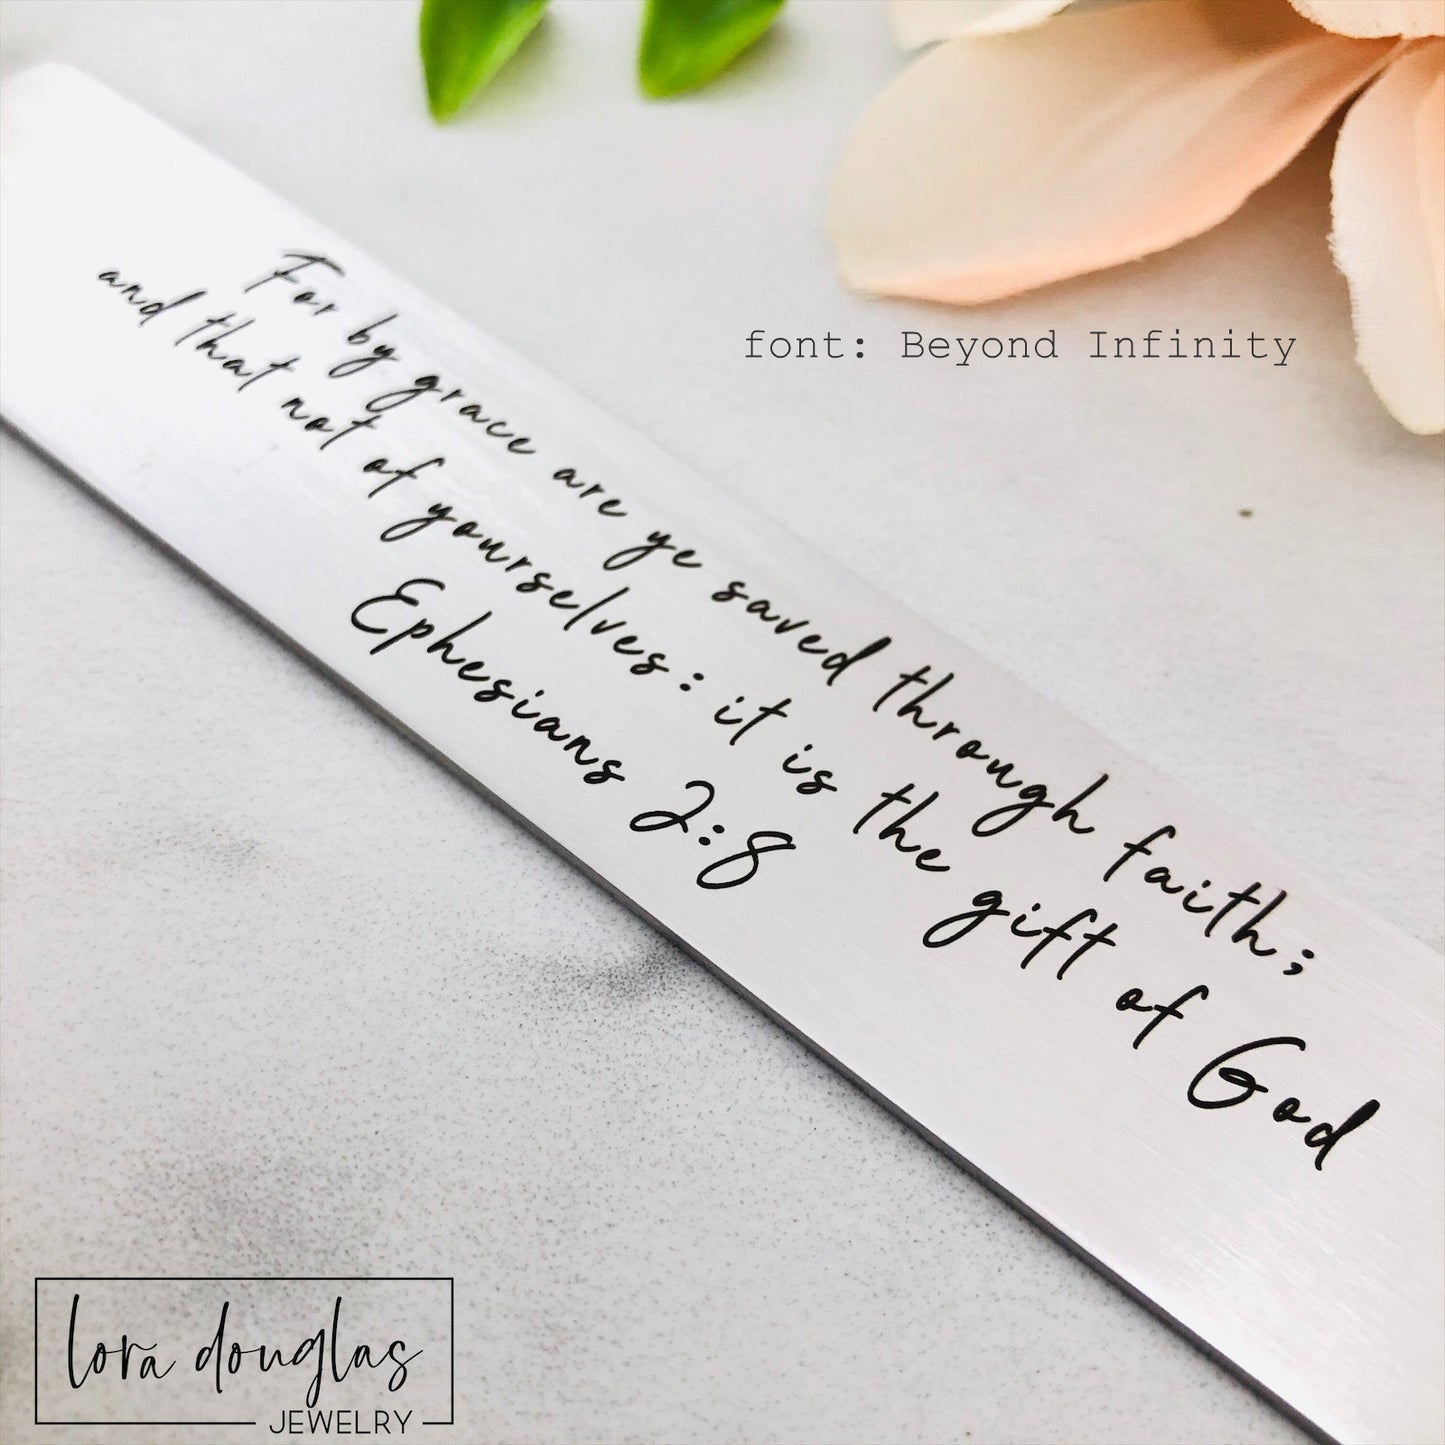 font: Beyond Infinity
For by grace are ye saved through faith;
and that not of yourselves: it is the gift of God
Ephesians 2:8
lora douglas
JEWELRY